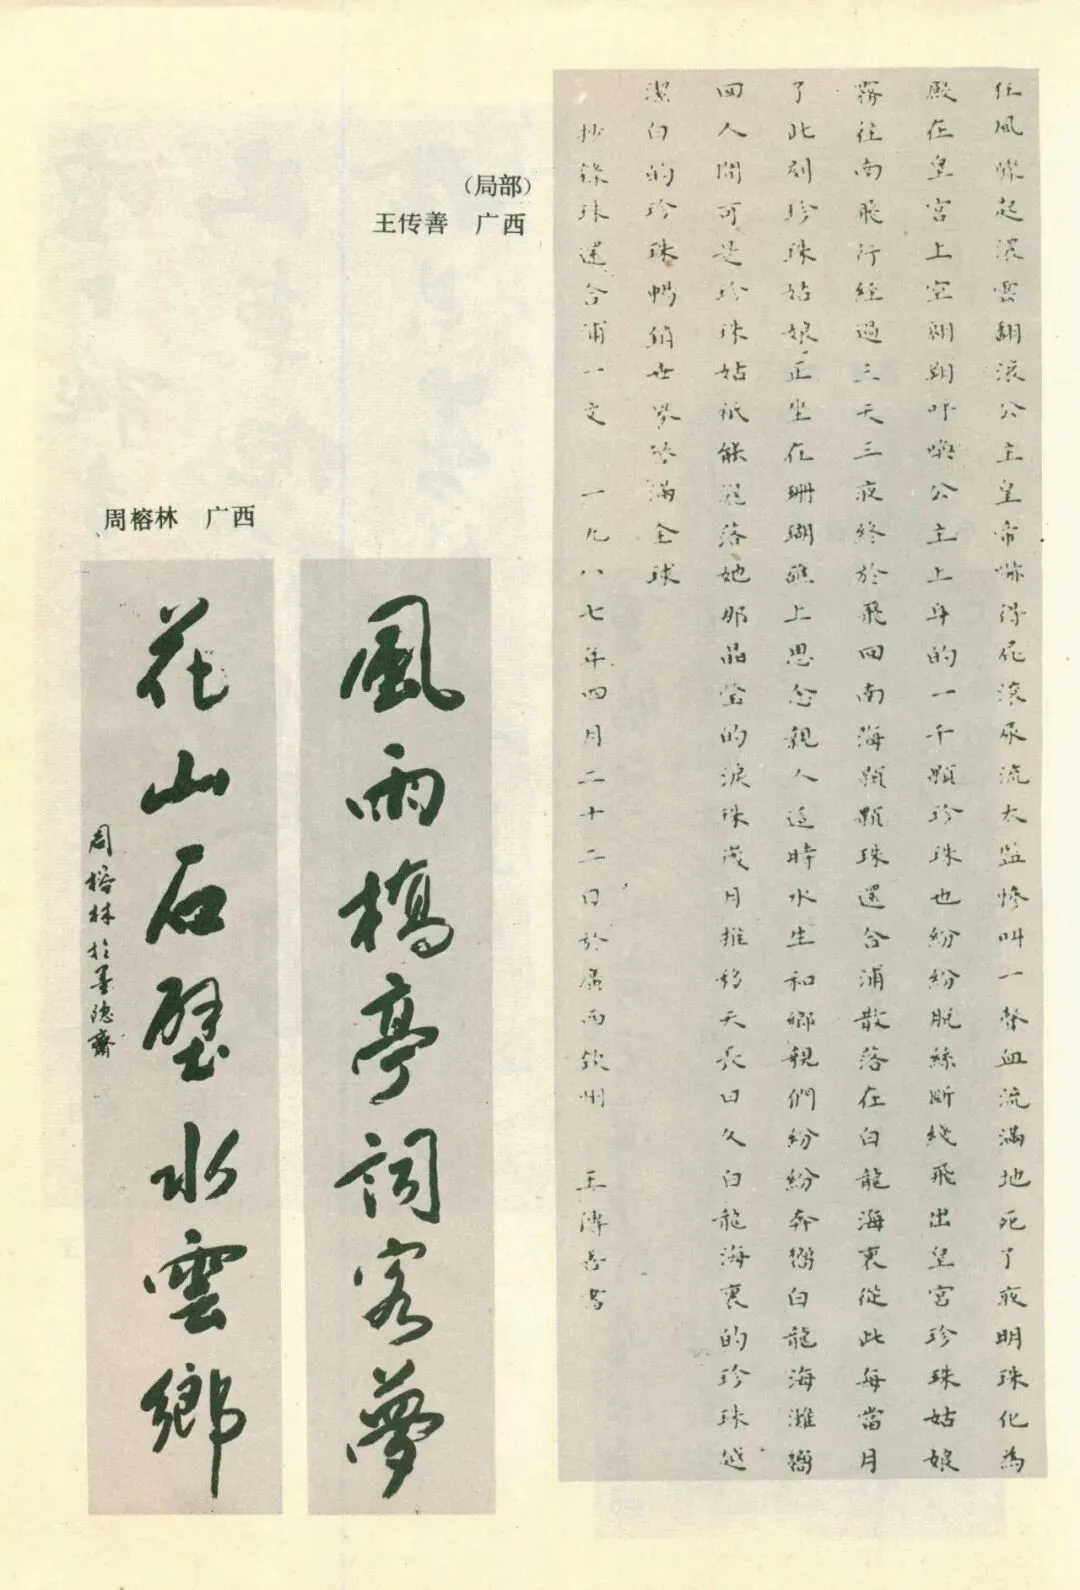 (局部)
王传善 广西
狂風驟起濃雲翻滚公主皇帝嚇得屁滚尿流太監慘叫一聲血流滿地死了夜明珠化為
殿在皇宮上空翱翔呼喚公主上身的一千顆珍珠也紛紛脫絲斷綫飛出皇宮珍珠姑娘
霧往南飛行經過三天三夜終於飛回南海顆顆珠還合浦散落在白龍海裏從此每當月
了此刻珍珠姑娘正坐在珊瑚礁上思念親人這時水生和鄉親們紛紛奔白龍海灘
回人間可是珍珠姑祇能落她那晶瑩的淚珠歲月推移天長日久白龍海裏的珍珠越
潔白的珍珠暢銷世界譽滿全球
抄錄珠還合浦一文 一九八七年四月二十二日於廣西欽州 王傳善書
周榕林 广西
風雨橋亭詞客夢
花山石壁水雲鄉
周榕林於墨隐齋